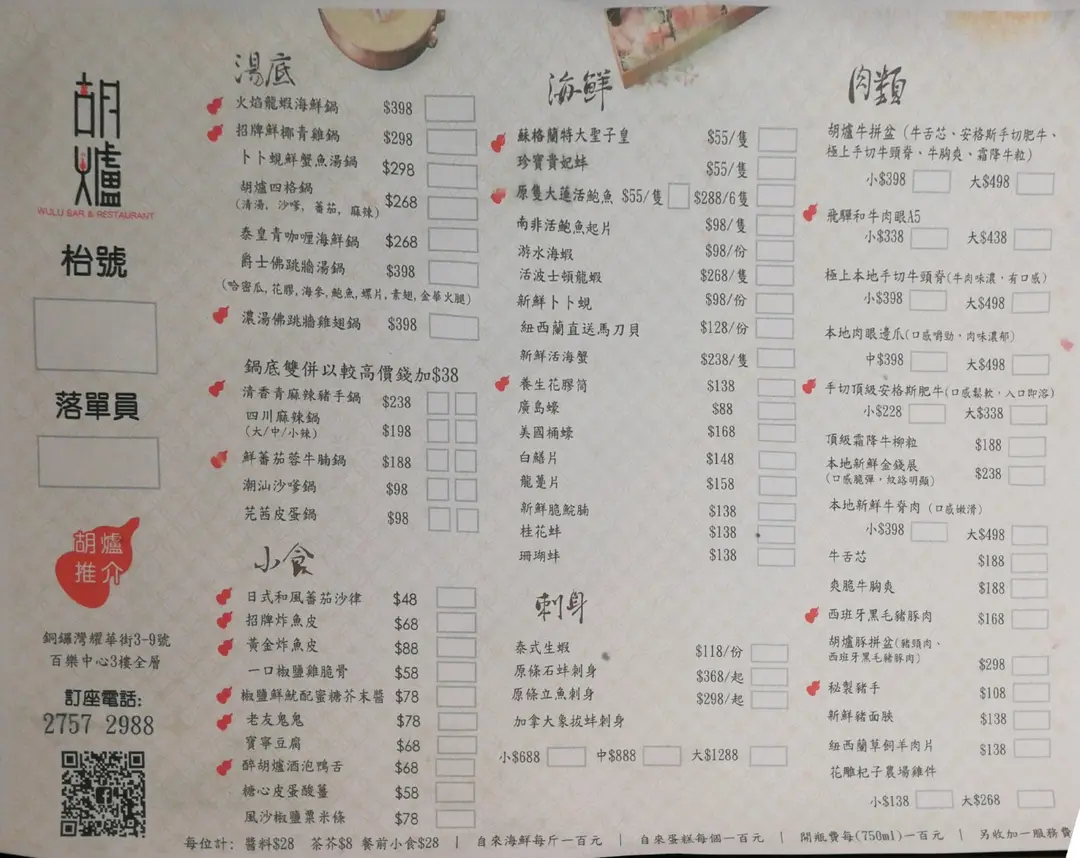 胡爐
WULU BAR & RESTAURANT
枱號
落單員
胡爐
推介
銅鑼灣耀華街3-9號
百樂中心3樓全層
訂座電話:
2757 2988
湯底
火焰龍蝦海鮮鍋 $398
招牌鮮椰青雞鍋 $298
卜卜蜆鮮蟹魚湯鍋 $298
胡爐四格鍋 $268
(清湯, 沙嗲, 蕃茄, 麻辣)
泰皇青咖喱海鮮鍋 $268
爵士佛跳牆湯鍋 $398
(哈密瓜,花膠,海參,鮑魚,螺片,素翅,金華火腿)
濃湯佛跳牆雞翅鍋 $398
鍋底雙併以較高價錢加$38
清香青麻辣豬手鍋 $238
四川麻辣鍋 $198
(大/中/小辣)
鮮蕃茄蓉牛腩鍋 $188
潮汕沙嗲鍋 $98
芫茜皮蛋鍋 $98
小食
日式和風蕃茄沙律 $48
招牌炸魚皮 $68
黃金炸魚皮 $88
一口椒鹽雞脆骨 $58
椒鹽鮮魷配蜜糖芥末醬 $78
老友鬼鬼 $78
寶寧豆腐 $68
醉胡爐酒泡鴨舌 $68
糖心皮蛋酸薑 $58
風沙椒鹽粟米條 $78
海鮮
蘇格蘭特大聖子皇 $55/隻
珍寶貴妃蚌 $55/隻
原隻大蓮活鮑魚 $55/隻 $288/6隻
南非活鮑魚起片 $98/隻
游水海蝦 $98/份
活波士頓龍蝦 $268/隻
新鮮卜卜蜆 $98/份
紐西蘭直送馬刀貝 $128/份
新鮮活海蟹 $238/隻
養生花膠筒 $138
廣島蠔 $88
美國桶蠔 $168
白鱔片 $148
龍躉片 $158
新鮮脆鯇腩 $138
桂花蚌 $138
珊瑚蚌 $138
刺身
泰式生蝦 $118/份
原條石蚌刺身 $368/起
原條立魚刺身 $298/起
加拿大象拔蚌刺身
小$688 中$888 大$1288
肉類
胡爐牛拼盆 (牛舌芯、安格斯手切肥牛、
極上手切牛頸脊、牛胸爽、霜降牛粒)
小$398 大$498
飛驒和牛肉眼A5
小$338 大$438
極上本地手切牛頸脊(牛肉味濃，有口感)
小$398 大$498
本地肉眼邊爪(口感嚼勁，肉味濃郁)
中$398 大$498
手切頂級安格斯肥牛(口感鬆軟，入口即溶)
小$228 大$338
頂級霜降牛柳粒 $188
本地新鮮金錢展 $238
(口感脆彈，紋路明顯)
本地新鮮牛脊肉 (口感嫩滑)
小$398 大$498
牛舌芯 $188
爽脆牛胸爽 $188
西班牙黑毛豬豚肉 $168
胡爐豚拼盆(豬頸肉、
西班牙黑毛豬豚肉) $298
秘製豬手 $108
新鮮豬面脥 $138
紐西蘭草飼羊肉片 $138
花雕杞子農場雞件
小$138 大$268
每位計: 醬料$28 茶芥$8 餐前小食$28 | 自來海鮮每斤一百元 | 自來蛋糕每個一百元 | 開瓶費每(750ml)一百元 | 另收加一服務費